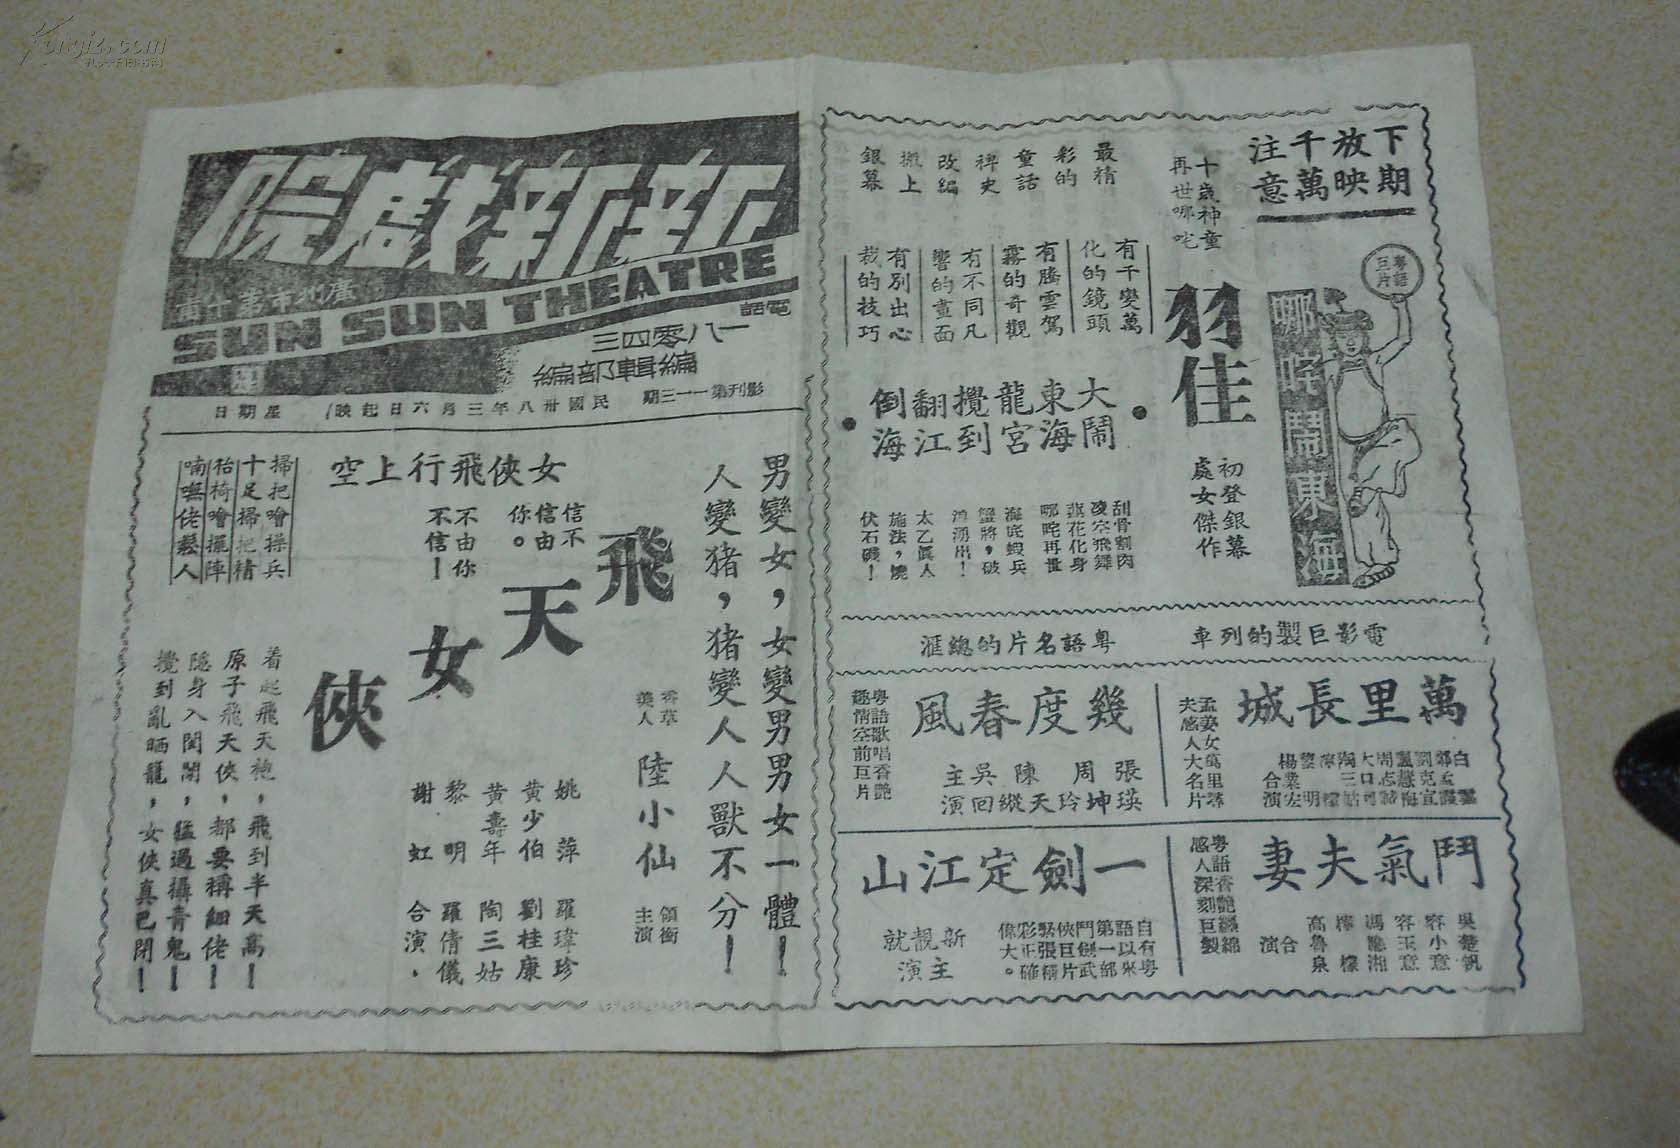 新新戲院
SUN SUN THEATRE
電話
一八零四三
編輯部編
影刊第一一三期
民國卅八年三月六日起映
星期日
男變女,女變男男女一體!
人變猪,猪變人人獸不分!
香草
美人
陸小仙
領銜
主演
女俠飛行上空
信不
信由
你。
不由你
不信!
飛天女俠
掃把噲操兵
十足掃把精
枱椅噲擺陣
喃嘸佬鬆人
着起飛天袍,飛到半天高!
原子飛天俠,都要稱細佬!
隱身入閨閣,猛過攝青鬼!
攪到亂晒龍,女俠真巴閉!
姚萍
羅瑋珍
黄少伯
劉桂康
黄壽年
陶三姑
黎明
羅倩儀
謝虹
合演.
下期
放映
千萬
注意
十歲神童
再世哪吒
羽佳
初登銀幕
處女傑作
粵語
巨片
哪吒鬧東海
最精
彩的
童話
稗史
改編
搬上
銀幕
有千變萬
化的鏡頭
有騰雲駕
霧的奇觀
有不同凡
響的畫面
有別出心
裁的技巧
大鬧
東海
龍宮
攪到
翻江
倒海
刮骨割肉
凌空飛舞
蓮花化身
哪吒再世
海底蝦兵
蟹將,破
浪湧出!
太乙真人
施法,燒
伏石磯!
電影巨製的列車
粵語名片的總滙
萬里長城
孟姜女萬里尋
夫感人大名片
白雲
鄭孟霞
劉克宣
周志誠
大口何
陶三姑
檸檬
黎明
楊業宏
合演
幾度春風
粵語歌唱香艷
趣情空前巨片
張瑛
周坤玲
陳天縱
吳回
主演
鬥氣夫妻
粵語香艷纏綿
感人深刻巨製
吳楚帆
容小意
容玉意
馮應湘
檸檬
高魯泉
合演
一劍定江山
自有粵
語以來
第一部
鬥劍武
俠巨片
緊張精
彩正確
偉大。
新靚就
主演